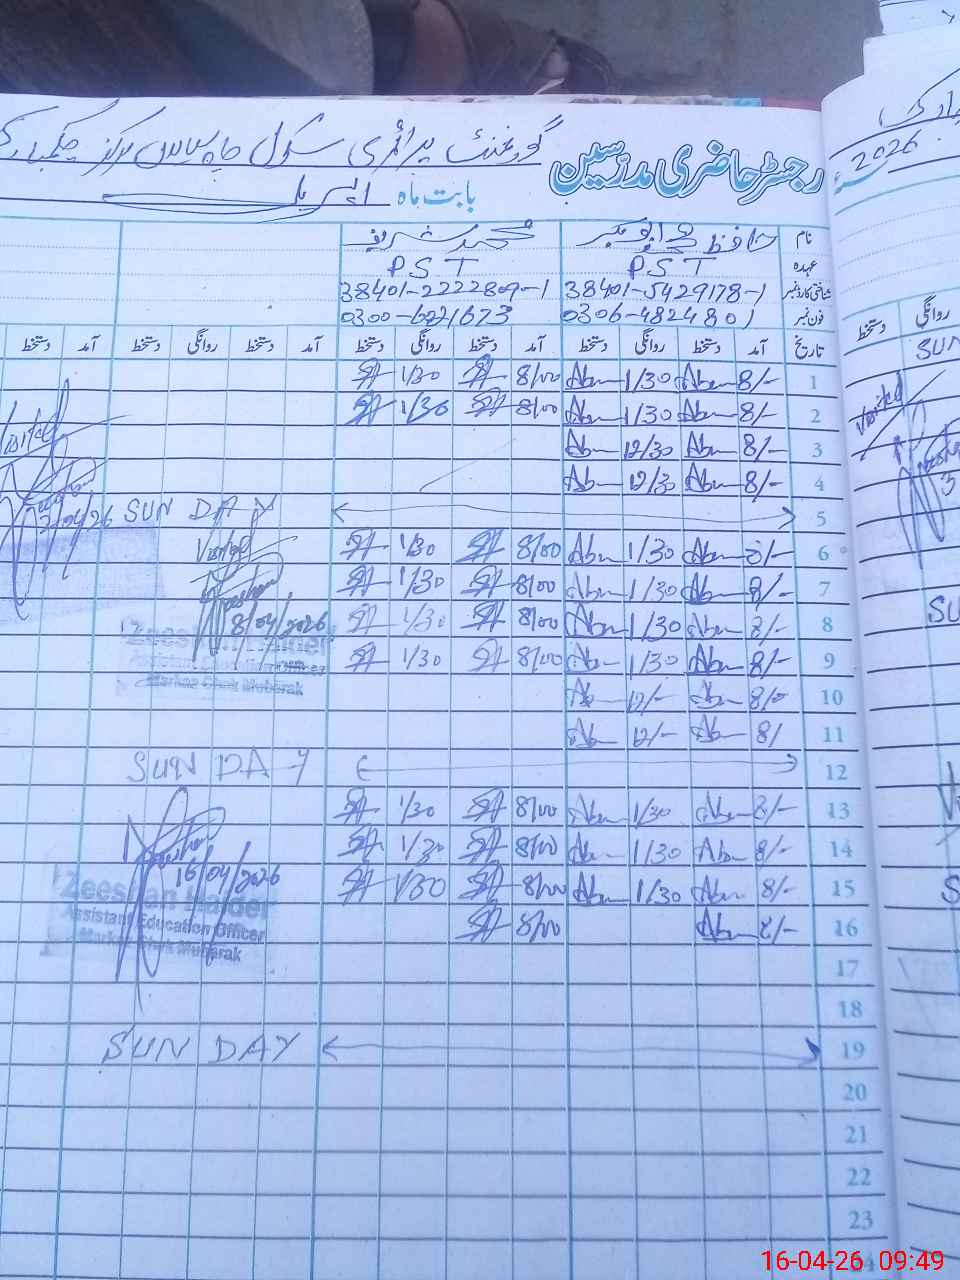 رجسٹر حاضری مدرسین
گورنمنٹ پرائمری سکول
بابت ماہ اپریل
2026
نام حافظ محمد شریف
عہدہ PST PST
شناختی کارڈ نمبر 38401-5429178-1 38401-2222809-1
فون نمبر 0306-4824801 0300-6021673
تاریخ آمد دستخط روانگی دستخط آمد دستخط روانگی دستخط آمد دستخط روانگی دستخط آمد دستخط
روانگی دستخط
1 8/- Abu 1/30 Abu 8/00 1/30
2 8/- Abu 1/30 Abu 8/00 1/30
3 8/- Abu 12/30 Abu
4 8/- Abu 12/30 Abu
Visited
2/04/26
5 SUN DAY
6 8/- Abu 1/30 Abu 8/00 1/30
Visited
7 8/- Abu 1/30 Abu 8/00 1/30
8 8/- Abu 1/30 Abu 8/00 1/30
8/04/2026
Zeeshan Haider
Assistant Education Officer
Markaz Chak Mubarak
9 8/- Abu 1/30 Abu 8/00 1/30
10 8/- Abu 12/- Abu
11 8/ Abu 12/- Abu
12 SUN DAY
13 8/- Abu 1/30 Abu 8/00 1/30
14 8/- Abu 1/30 Abu 8/00 1/30
15 8/- Abu 1/30 Abu 8/00 1/30
16/04/2026
Zeeshan Haider
Assistant Education Officer
Markaz Chak Mubarak
16 8/- Abu 8/00
17
18
19 SUN DAY
20
21
22
23
24
SUN
Visited
16-04-26 09:49